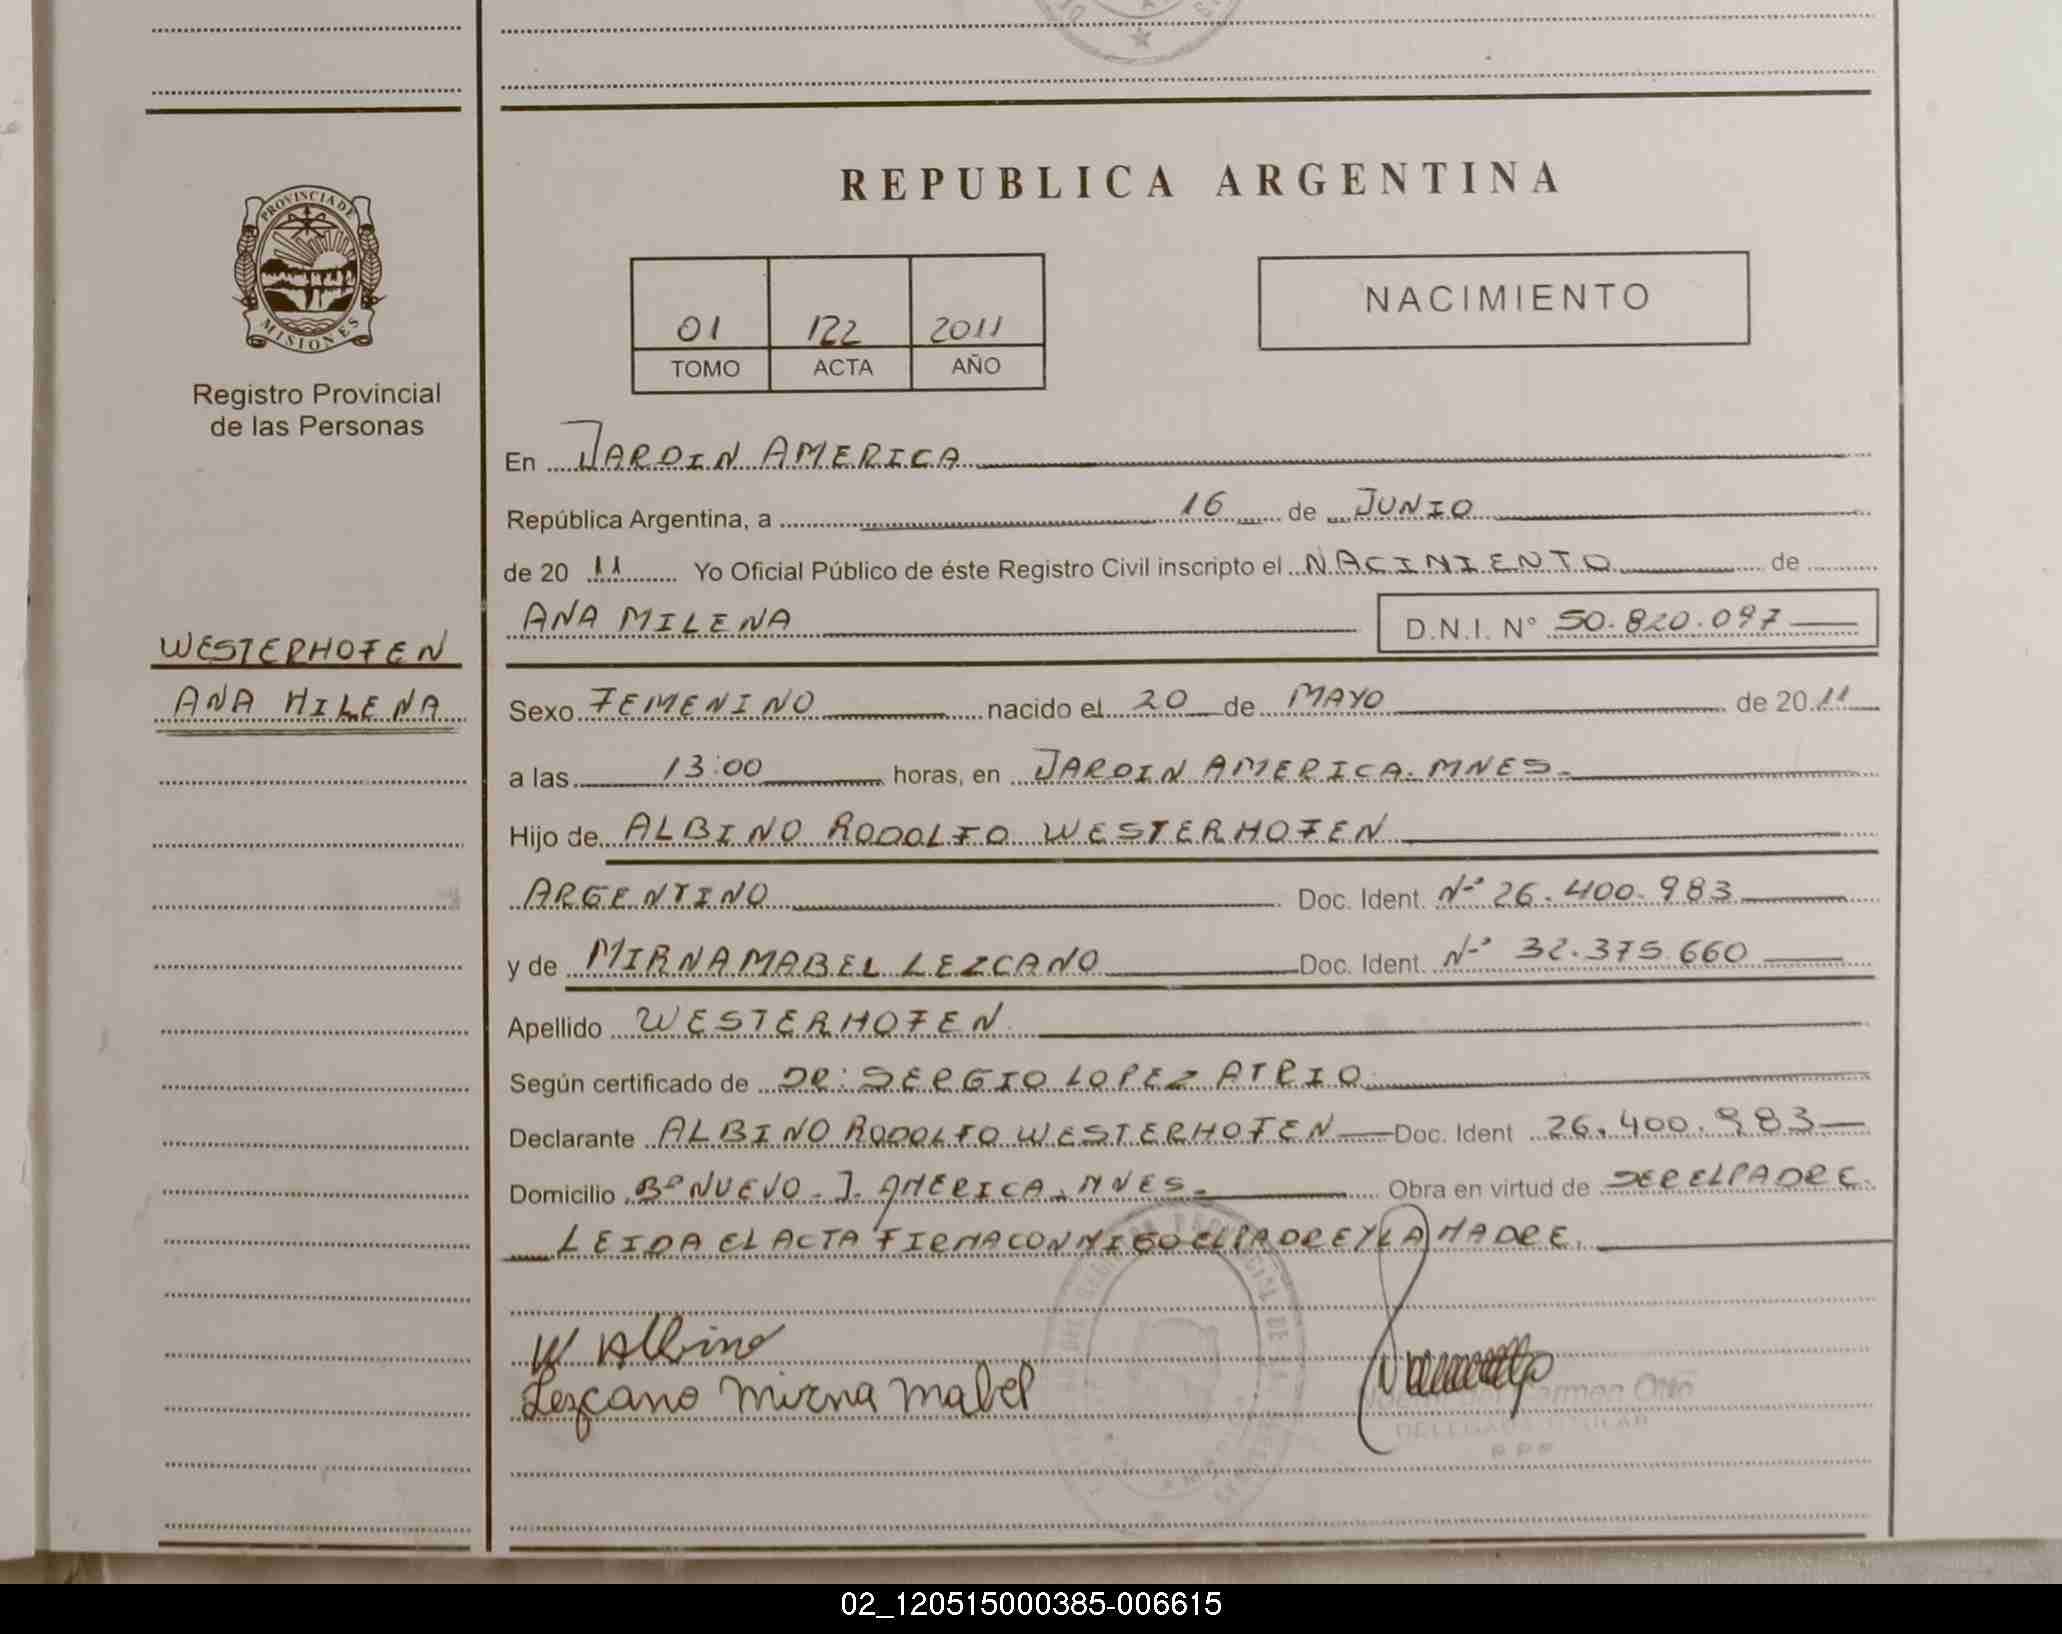 REPUBLICA ARGENTINA
PROVINCIA DE MISIONES
Registro Provincial
de las Personas
01 122 2011
TOMO ACTA AÑO
NACIMIENTO
En JARDIN AMERICA
República Argentina, a 16 de JUNIO
de 20 11 Yo Oficial Público de éste Registro Civil inscripto el NACIMIENTO de
ANA MILENA D.N.I. N° 50.820.097
WESTERHOFEN
ANA MILENA
Sexo FEMENINO nacido el 20 de MAYO de 20 11
a las 13:00 horas, en JARDIN AMERICA. MNES.
Hijo de ALBINO RODOLFO WESTERHOFEN
ARGENTINO Doc. Ident. Nº 26.400.983
y de MIRNA MABEL LEZCANO Doc. Ident. Nº 32.375.660
Apellido WESTERHOFEN
Según certificado de DR: SERGIO LOPEZ ATRIO
Declarante ALBINO RODOLFO WESTERHOFEN Doc. Ident 26.400.983
Domicilio Bº NUEVO. J. AMERICA. MNES. Obra en virtud de SER EL PADRE.
LEIDA EL ACTA FIRMA CONMIGO EL PADRE Y LA MADRE.
W Albino
Lezcano Mirna Mabel
del Carmen Otto
DELEGADA TITULAR
R.P.P.
02_120515000385-006615